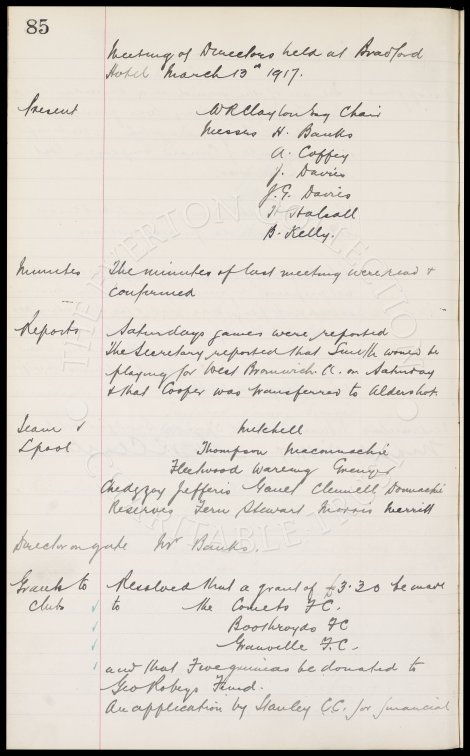 85
Meeting of Directors held at Bradford
Hotel March 13th 1917.
Present W R Clayton Esq Chair
Messrs H. Banks
A. Coffey
J. Davies
J. G. Davies
H Halsall
B. Kelly.
Minutes The minutes of last meeting were read &
confirmed
Reports Saturdays games were reported
The Secretary reported that Smith would be
playing for West Bromwich A. on Saturday
& that Cooper was transferred to Aldershot.
Team v Mitchell
Lpool Thompson Maconnachie
Fleetwood Wareing Grenyer
Chedgzoy Jefferis Gault Clennell Donnachie
Reserves Fern Stewart Morris Merritt
Director on gate Mr Banks.
Grants to Resolved that a grant of £3.3.0 be made
Clubs to the Comets FC.
Boothroyds FC
Granville F.C.
and that Five guineas be donated to
Geo Robeys Fund.
An application by Stanley C.C. for financial
THE EVERTON COLLECTION
CHARITABLE TRUST